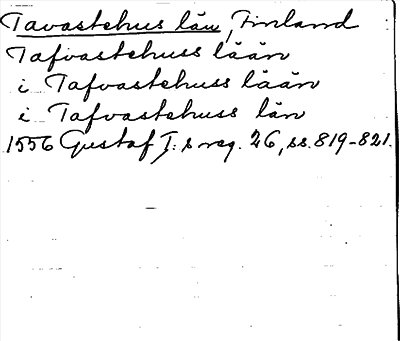 Tavastehus län, Finland
Tafvastehuss lään
i Tafvastehuss lään
i Tafvastehuss län
1556 Gustaf I:s reg. 26, ss. 819-821.